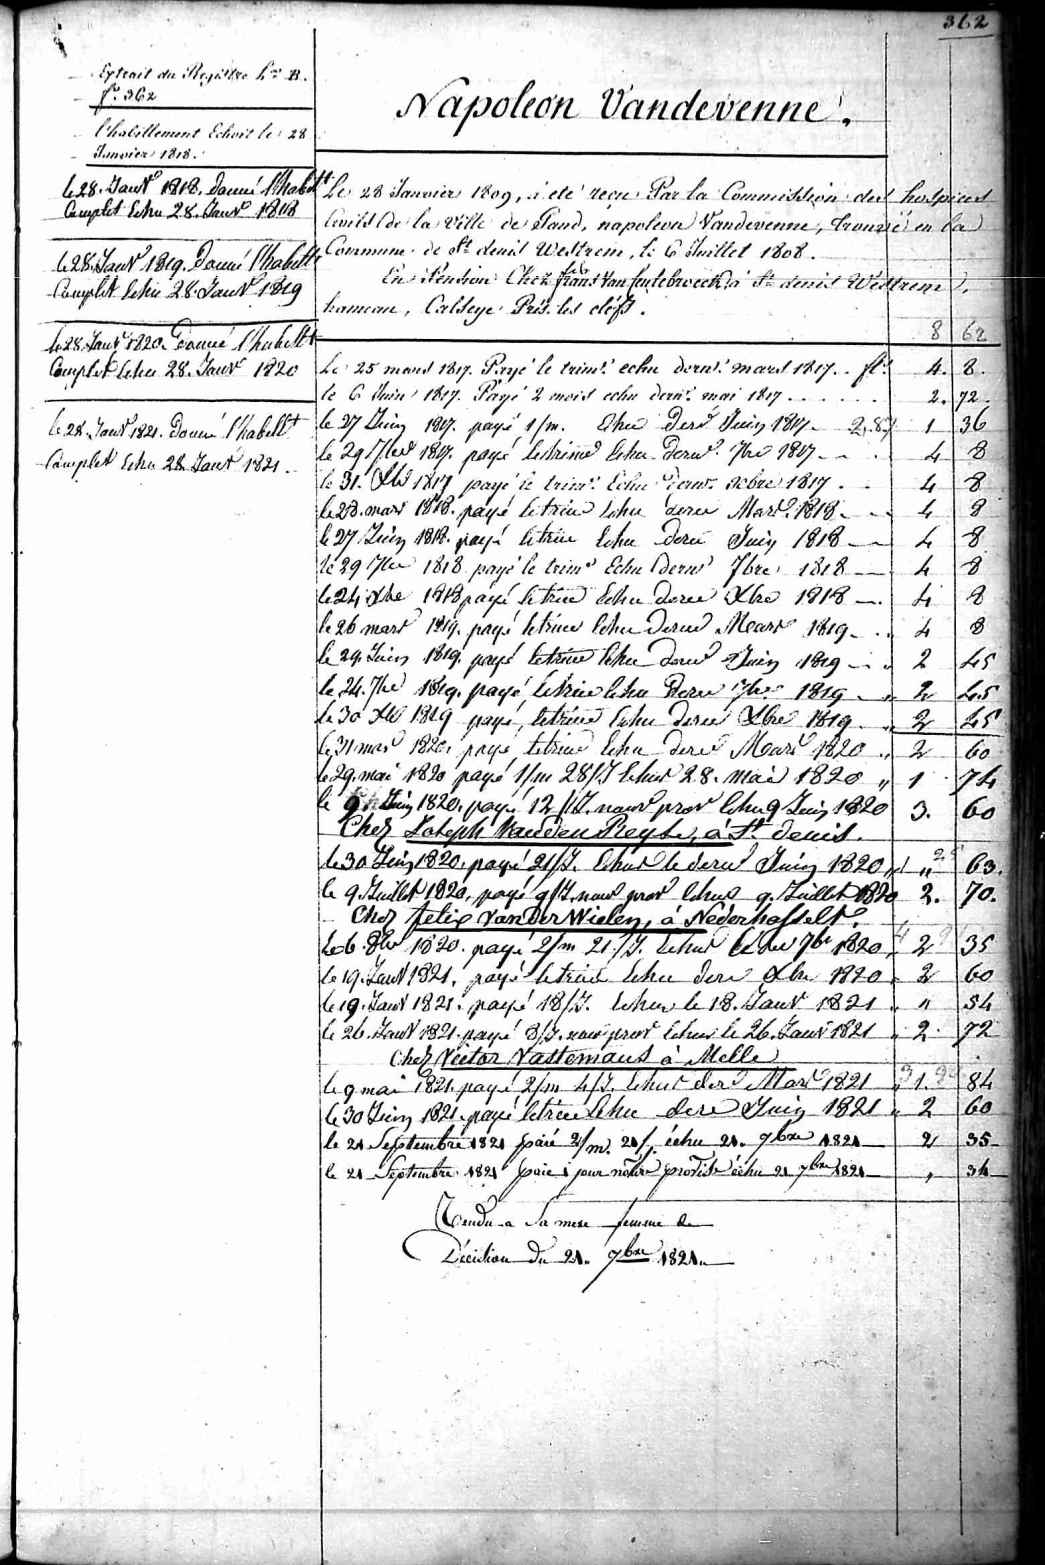 362
Extrait du Registre L.re B.
f.o 362
l'habillement Echoit le 28
Janvier 1818.
le 28. Janv.r 1818. Donné l'habill.t
Complet Echu 28. Janv.r 1818
le 28. Janv.r 1819. Donné l'habill.t
Complet Echu 28. Janv.r 1819
le 28. Janv.r 1820. Donné l'habill.t
Complet Echu 28. Janv.r 1820
le 28. Janv.r 1821. Donné l'habill.t
Complet Echu 28 Janv.r 1821.
Napoleon Vandevenne.
Le 28 Janvier 1809, a été reçu Par la Commission des hospices
Civils de la Ville de Gand, napoleon Vandevenne, trouvé en la
Commune de St. denis Westrem, le 6 Juillet 1808.
En Pension Chez frans à St. denis Westrem,
hameau, Près les clefs.
8 62
Le 25 mars 1817. Payé le trim.e echu dern.r mars 1817. fl.s 4. 8.
le 6 Juin 1817. Payé 2 mois echu dern.r mai 1817 2. 72.
le 27 Juin 1817. payé 1/m. Echu der.r Juin 1817. 1 36
le 29 7bre 1817. payé le trime Echu dern.r 7bre 1817 4 8
le 31. Xbre 1817 payé le trim.e Echu dern.r xbre 1817. 4 8
le 28. mars 1818. payé le trim Echu dere Mars 1818 4 8
le 27 Juin 1818. payé le trim Echu dere Juin 1818 4 8
le 29 7bre 1818 payé le trim.e Echu dern.r 7bre 1818 4 8
le 24 Xbre 1818 payé le trim Echu dere Xbre 1818 4 8
le 26 mars 1819. payé le trim Echu dere Mars 1819 4 8
le 29. Juin 1819. payé le trim Echu dere Juin 1819 2 45
le 24. 7bre 1819. payé le trim Echu dere 7bre 1819 " 2 45
le 30 Xbre 1819 payé, le trim Echu dere Xbre 1819 " 2 45
le 31 mars 1820. payé le trim Echu dere Mars 1820 " 2 60
le 29. mai 1820 payé 1/m 28/J. Echus 28. mai 1820 " 1 74
le 9 Juin 1820. payé 12/J. nour prov Echu 9 Juin 1820 3. 60
Chez Joseph Vanden Reyse, à St. denis.
le 30 Juin 1820. payé 21/J. Echus le dere Juin 1820 " " 63.
le 9 Juillet 1820, payé 9/J. nour prov Echus 9. Juillet 1820 2. 70.
Chez felix Van Der Wielen, à Nederhasselt.
le 6. 8bre 1820. payé 2/m 21/J. Echus le dere 7bre 1820 " 2 35
le 19. Janv 1821. payé le trim Echu dere Xbre 1820 " 2 60
le 19. Janv 1821. payé 18/J. Echus le 18. Janv 1821 " " 54
le 26. Janv 1821. payé 8/J. nour prov Echus le 26. Janv 1821 " 2. 72
Chez Victor Vastemans à Melle
le 9 mai 1821. payé 2/m 4/J. Echus der.e Mars 1821 " 1. 84
le 30 Juin 1821. payé le trim Echu dere Juin 1821 " 2 60
le 21 Septembre 1821 paié 2/m. 21/j. échu 21. 7bre 1821 2 35
le 21 Septembre 1821 paié jour échu 21 7bre 1821 , 34
Rendu a Sa mere femme de
Décision du 21. 7bre 1821.